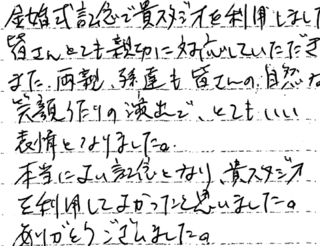 金婚式記念で貴スタジオを利用しまし
皆さんとても親切に対応していただき
また、両親、孫達も皆さんの、自然な
笑顔作りの演出で、とてもいい
表情となりました。
本当によい記念となり、貴スタジオ
を利用してよかったと思いました。
ありがとうございました。